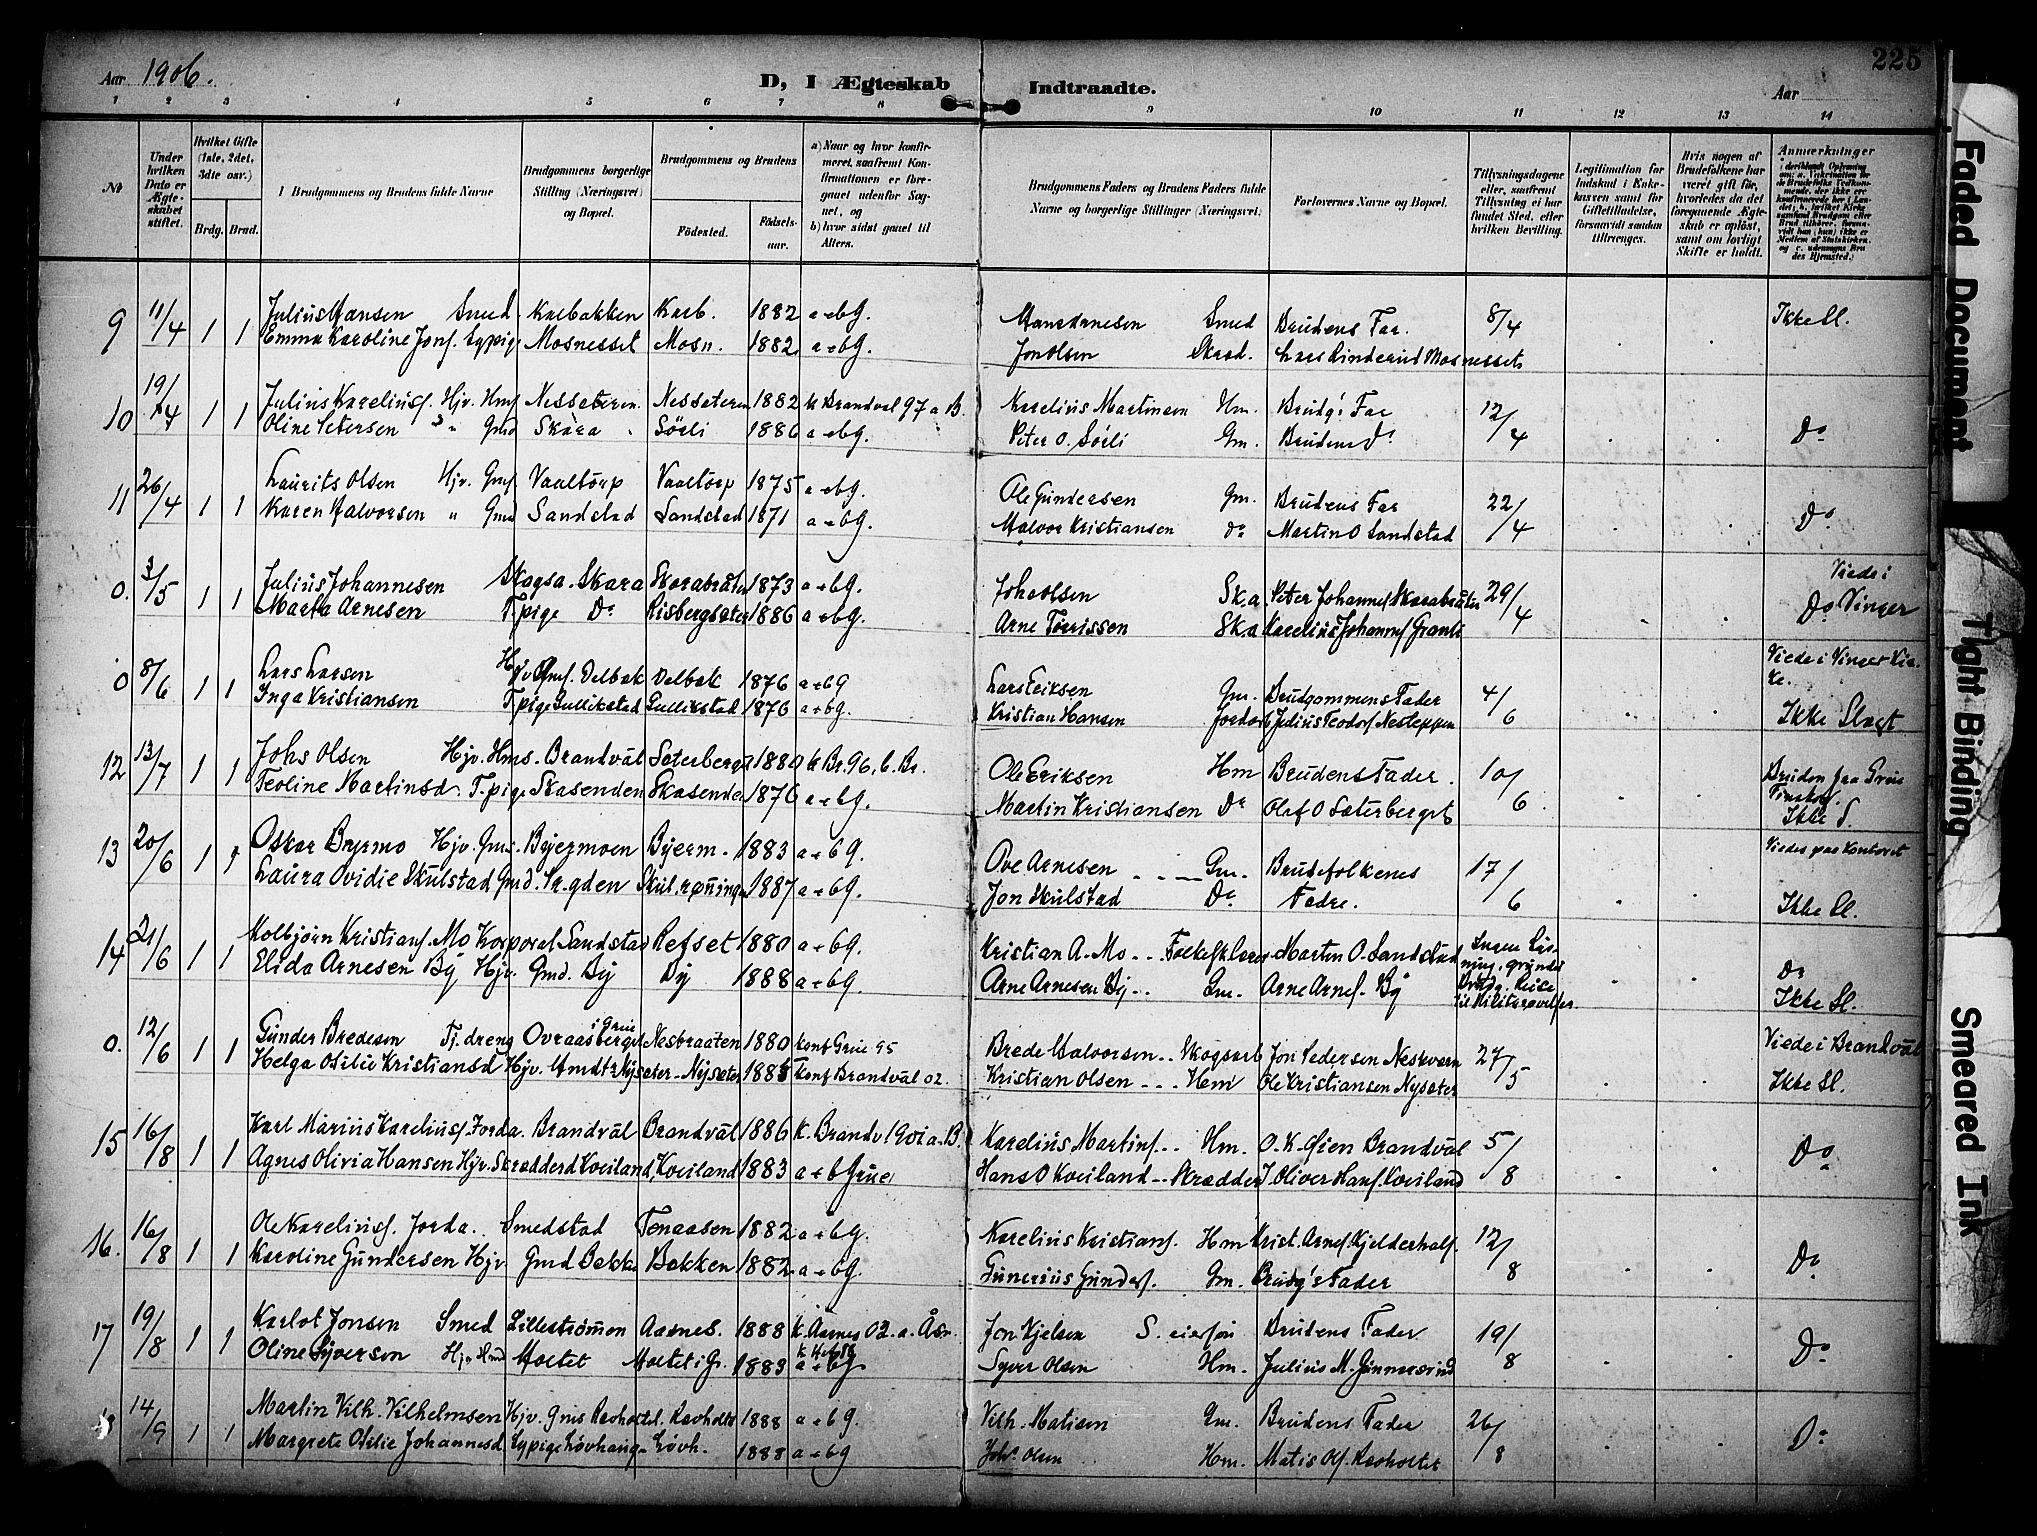 225
Aar 1906.
D, I Ægteskab Indtraadte.
Aar
1 2 3 4 5 6 7 8 9 10 11 12 13 14
№
Under hvilken Dato er Ægteskabet stiftet.
Hvilket Gifte (1ste, 2det, 3die osv.)
Brdg. Brud.
Brudgommens og Brudens fulde Navne
Brudgommens borgerlige Stilling (Næringsvei) og Bopæl.
Brudgommens og Brudens
Fødested. Fødselsaar.
a) Naar og hvor konfirmeret, saafremt Konfirmationen er foregaaet udenfor Sognet, og
b) hvor sidst gaaet til Alters.
Brudgommens Faders og Brudens Faders fulde Navne og borgerlige Stillinger (Næringsvei)
Forlovernes Navne og Bopæl.
Tillysningsdagene eller, saafremt Tillysning ei har fundet Sted, efter hvilken Bevilling.
Legitimation for Indskud i Enkekassen samt for Giftetilladelse, forsaavidt saadan tiltrænges.
Hvis nogen af Brudefolkene har været gift før, hvorledes da det foregaaende Ægteskab er opløst, samt om lovligt Skifte er holdt.
Anmærkninger
9 11/4 1 1 Julius Hansen Smed Karbakken Karb. 1882 a-bG. Hans Arnesen Smed Brudens Far. 8/4 Ikke Sl.
Emma Karoline Jonsf. Sypige Mosnesset Mosn. 1882 a-bG. Jon Olsen Skrad. Lars Linderud Mosnesset
10 19/4 1 1 Julius Kareliusf. Hjv. Hmf Nessæteren Nessæteren 1882 k Brandval 97 a B. Karelius Martinsen Hm. Brudg's Far 12/4 Do
Oline Petersen " Gmd Skara Sörli 1886 a-bG. Peter O. Sörli Gm. Brudens Do
11 26/4 1 1 Laurits Olsen Hjv. Gmf Vaaltorp Vaaltorp 1875 a-bG. Ole Gundersen Gm. Brudens Far 22/4 Do
Karen Halvorsen " Gmd Sandstad Sandstad 1871 a-bG. Halvor Kristiansen do Martin O Sandstad
0. 3/5 1 1 Julius Johannesen Skogsa. Skara Skarabråten 1873 a-bG. Joh. Olsen Ska. Peter Johannesf Skarabråten 29/4 Viede i
Marta Arnesen T.pige Do Risbergsæter 1886 a-bG. Arne Torrissen Ska Karelius Johannesf Granli Do Vinger
0 8/6 1 1 Lars Larsen Hjv Gmf. Delbæk Delbæk 1876 a-bG Lars Eriksen Gm. Brudgommens Fader 4/6 Viede i Vinger Kirke.
Inga Kristiansen T.pige Gullikstad Gullikstad 1876 a-bG. Kristian Hansen Jordarb Julius Teodorf Nesteppen Ikke Slægt
12 13/7 1 1 Johs Olsen Hjv. Hms. Brandvål Sæterberget 1880 k Br. 96. b. Br. Ole Eriksen Hm Brudens Fader. 10/6 Bruden fra Grue Finskog.
Teoline Martinsd. T.pige Skasenden Skasenden 1876 a-bG. Martin Kristiansen Do Olaf O Sæterberget Ikke S.
13 20/6 1 1 Oskar Byermo Hjv. Gms. Byermoen Byerm. 1883 a-bG. Ove Arnesen Gm. Brudefolkenes 17/6 Viede paa Kontoret
Laura Ovidie Skulstad Gmd. Skulstad 1887 a-bG. Jon Skulstad Do Fædre. Ikke Sl.
14 21/6 1 1 Kolbjörn Kristianf. Mo Korporal Sandstad Refset 1880 a-bG. Kristian A. Mo Folkesk.lærer Martin O. Sandstad Ingen Lysning, grundet Brudg. Reise til Militærøvelser Do
Elida Arnesen By Hjv. Gmd. By By 1888 a-bG. Arne Arnesen By Gm. Arne Arnesf. By Ikke Sl.
0. 12/6 1 1 Gunder Bredesen Tj.dreng Ovraasberget i Grue Nesbraaten 1880 konf Grue 95 Brede Halvorsen Skogsarb Jon Pedersen Neskværn 27/5 Viede i Brandvål
Helga Otilie Kristiansd Hjv. Hmdtr Nysæter Nysæter 1885 konf Brandvål 02. Kristian Olsen Hm Ole Kristiansen Nysæter Ikke Sl.
15 16/8 1 1 Karl Marius Kareliusf. Jorda. Brandvål Brandvål 1886 k. Brandv 1901 a-B. Karelius Martinf. Hm. O. K. Øien Brandvål 5/8 Do
Agnes Olivia Hansen Hjv. Skrædderd Kveiland, Kveiland 1883 a-bGrue Hans O Kveiland Skrædder J. Oliver Hansf. Kveiland
16. 16/8 1 1 Ole Kareliusf. Jorda. Smedstad Tenaasen 1882 a-bG. Karelius Kristiansf. Hm Krist. Arnesf Kjelderhalf. 12/8 Do
Karoline Gundersen Hjv Gmd Bakken Bakken 1882 a-bG. Gunerius Gundersf. Gm. Brudg's Fader
17 19/8 1 1 Karlot Jonsen Smed Lilleströmmen Aasnes. 1888 k. Åsnes 02. a. Åsn. Jon Kjelsen S.eiersøn Brudens Fader 19/8 Do
Oline Syversen Hjv Hmd Moetet Moetet i Gr. 1883 a-bG Syver Olsen Hm. Julius M. Gunnersrud
18 14/9 1 1 Martin Vilh. Vilhelmsen Hjv. Gms Ravholtet. Ravholtet 1888 a-bG. Vilh. Matisen Gm. Brudens Fader 26/8 Do
Margrete Otilie Johannesd Sypige Lövhaugen Lövh. 1888 a-bG Johs. Olsen Hm. Matis Olsf. Ravholtet
Faded Document
Tight Binding
Smeared Ink